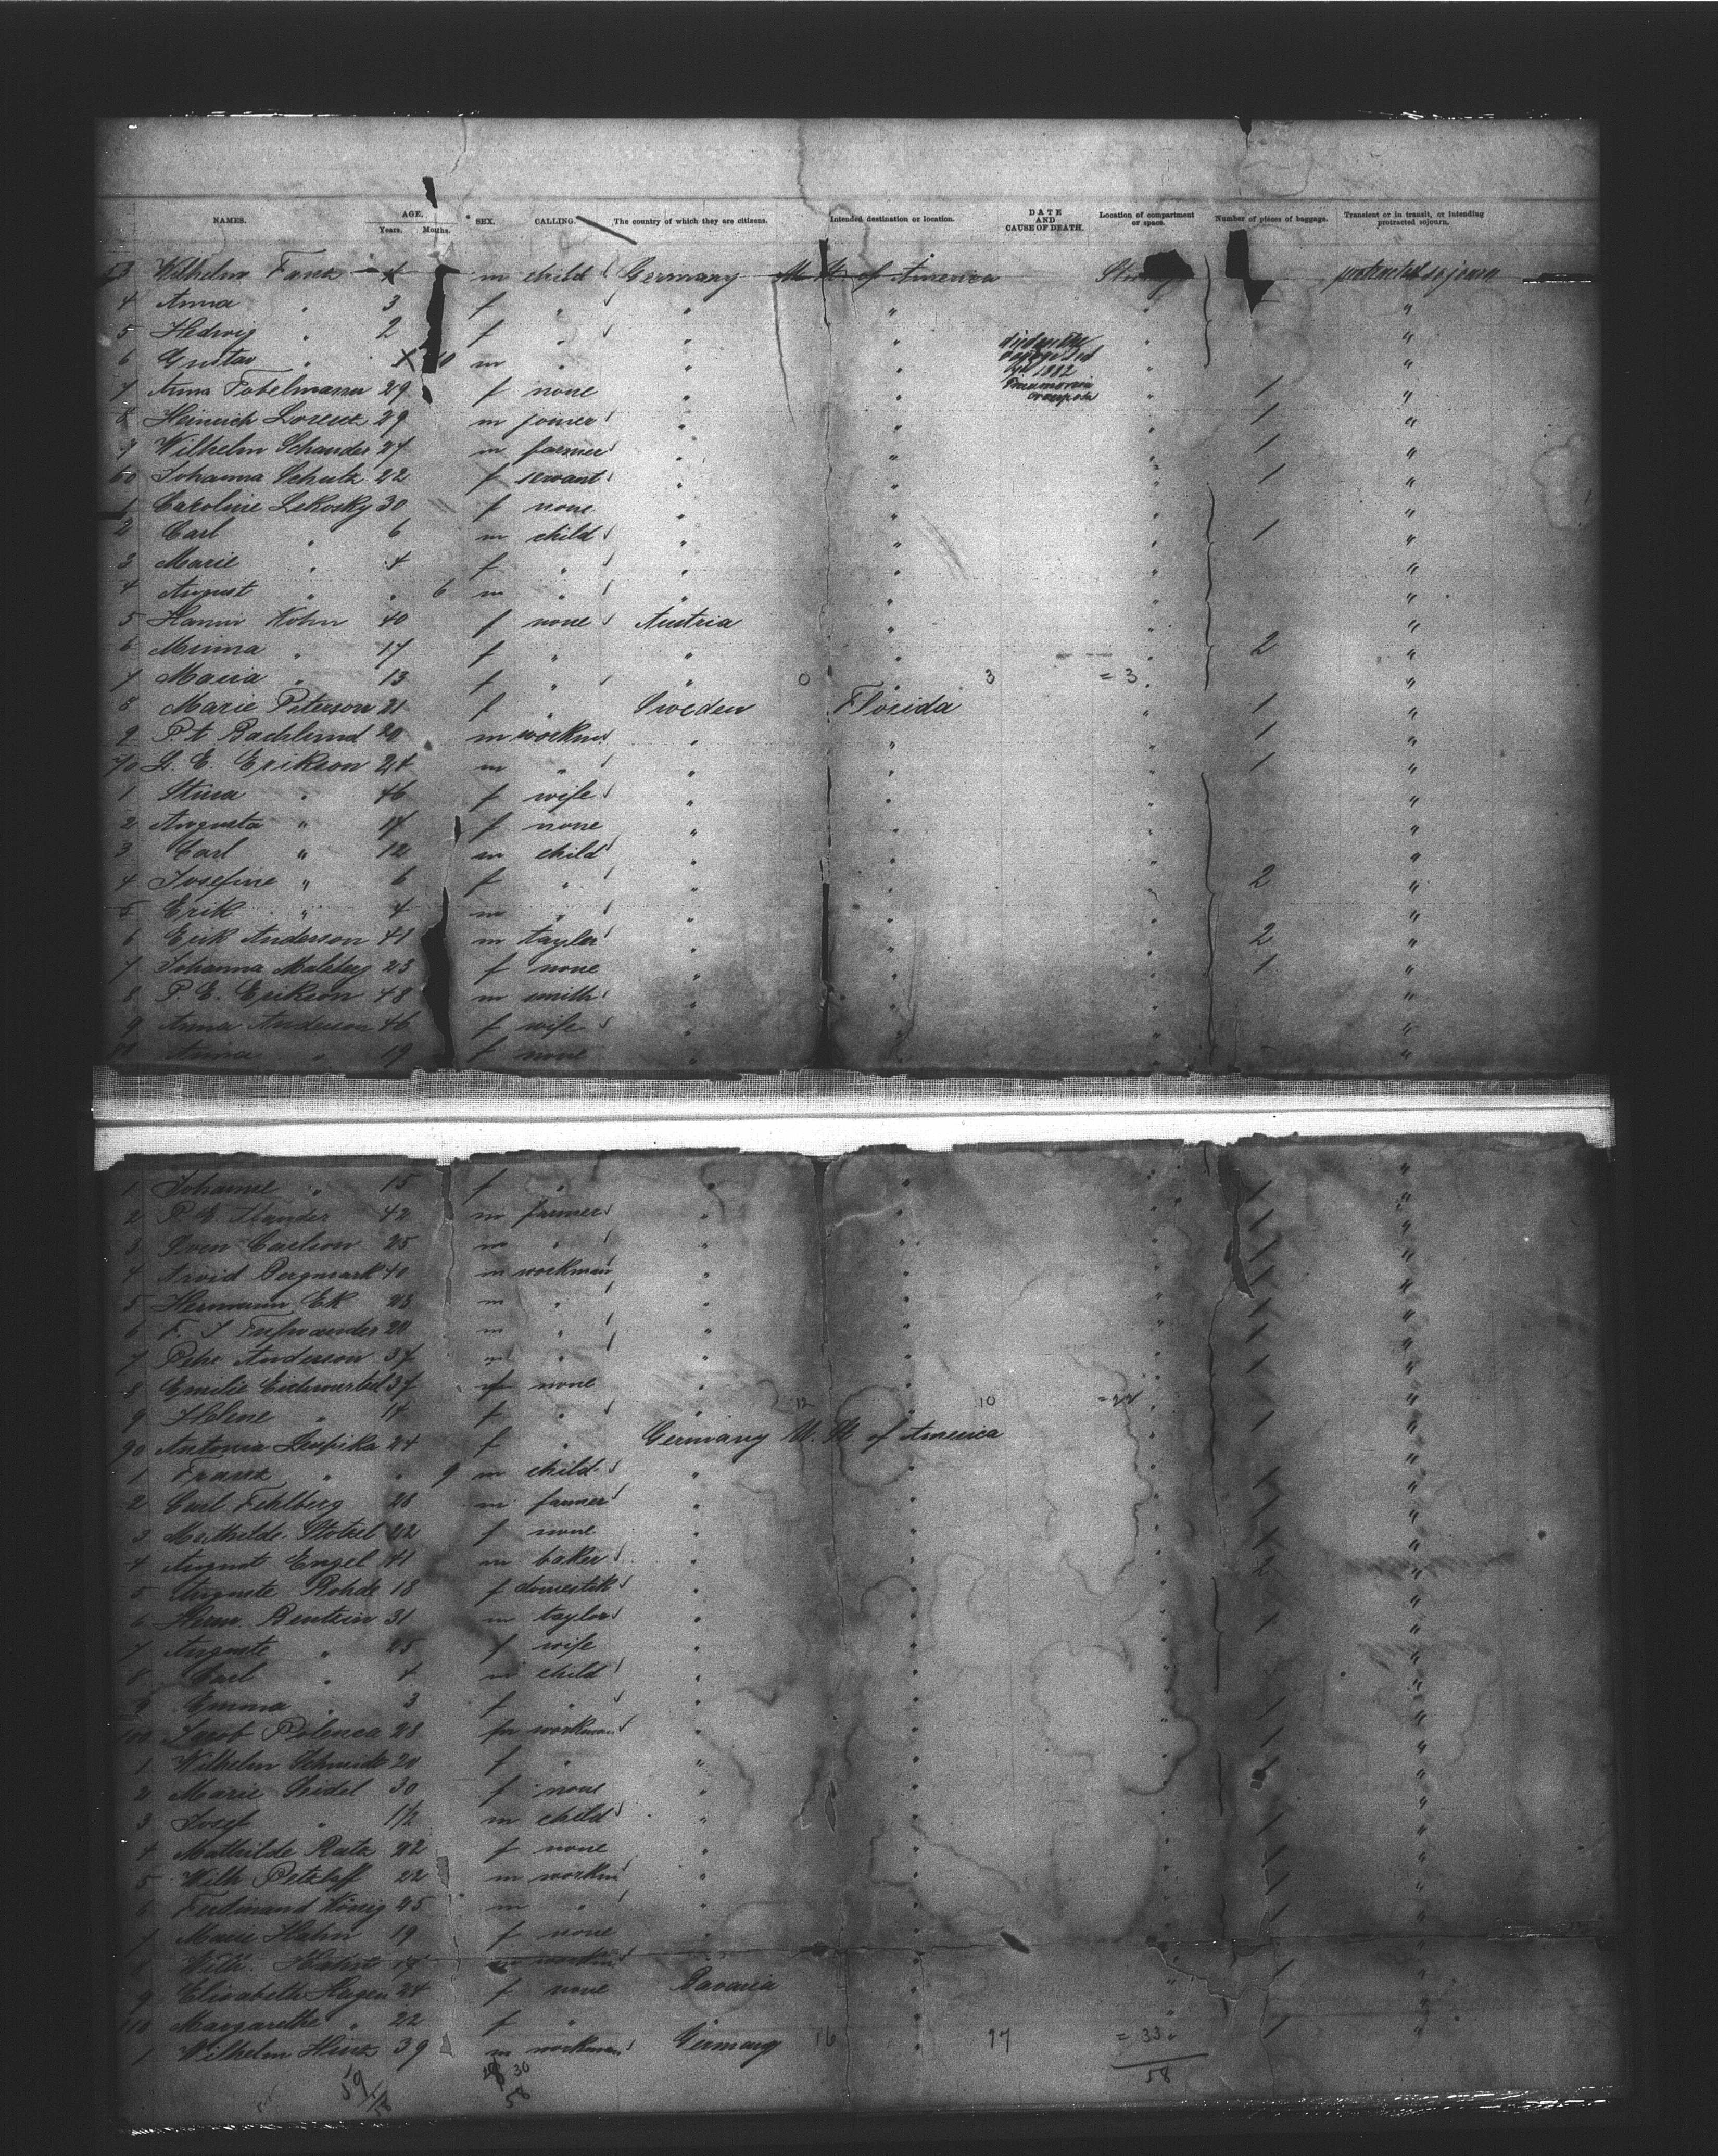 NAMES. AGE. Years. Months. SEX. CALLING. The country of which they are citizens. Intended destination or location. DATE AND CAUSE OF DEATH. Location of compartment or space. Number of pieces of baggage. Transient or in transit, or intending protracted sojourn.
53 Wilhelm Franz 4 m child Germany U. St. of America protracted sojourn
4 Anna " 3 f " " " " "
5 Hedwig " 2 f " " " " "
6 Gustav " 10 m " " " " "
1882
7 Anna Fobelmann 29 f none " " " 1 "
8 Heinrich Lorenz 29 m joiner " " " 1 "
9 Wilhelm Schander 27 m farmer " " " 1 "
60 Johanna Schulz 22 f servant " " " 1 "
1 Caroline Lekosky 30 f none " " " "
2 Carl " 6 m child " " " 1 "
3 Marie " 4 f " " " " "
4 August " " 6 m " " " " "
5 Hanni Kohn 40 f none Austria " " "
6 Minna " 17 f " " " " 2 "
7 Maria " 13 f " " 0 " 3 = 3 " "
8 Marie Peterson 21 f " Sweden Florida " 1 "
9 P. A. Bachlund 20 m workm " " " 1 "
70 L. E. Erikson 24 m " " " " 1 "
1 Stina " 46 f wife " " " "
2 Augusta " 17 f none " " " "
3 Carl " 12 m child " " " "
4 Josefine " 6 f " " " " 2 "
5 Erik " 4 m " " " " "
6 Erik Anderson 41 m tayler " " " 2 "
7 Johanna Malsberg 23 f none " " " 1 "
8 P. E. Erikson 48 m smith " " " "
9 Anna Anderson 46 f wife " " " "
80 Anna " 19 f none " " " "
1 Johanne " 15 f " " " " 1 "
2 P. E. 42 m farmer " " " 1 "
3 Sven Carlson 25 m " " " " 1 "
4 Arvid Bergmark 40 m workman " " " 1 "
5 Hermann Ek 23 m " " " " 1 "
6 F. J. 20 m " " " " 1 "
7 Pehr Anderson 37 m " " " " 1 "
8 Emilie 37 f none " 12 " 10 = 22 " "
9 Helene " 14 f " " " " 1 "
90 Antonia 24 f " Germany U. St. of America "
1 Franz " " 9 m child " " " 1 "
2 Carl Fehlberg 28 m farmer " " " 1 "
3 Mathilde Stotzel 22 f none " " " 1 "
4 August Engel 41 m baker " " " 2 "
5 Auguste Rohde 18 f domestik " " " "
6 Herm. Bentein 31 m taylor " " " 1 "
7 Auguste " 25 f wife " " " "
8 Carl " 4 m child " " " "
9 Emma " 3 f " " " " 1 "
100 Jacob Polenca 28 m workman " " " 1 "
1 Wilhelm Schmidt 20 f " " " " "
2 Marie Seidel 30 f none " " " "
3 Josef " 1/2 m child " " " 1 "
4 Mathilde Ratz 22 f none " " " 1 "
5 Wilh Petzlaff 22 m workm " " " 1 "
6 Ferdinand König 45 m " " " " 1 "
7 Marie Hahn 19 f none " " " "
8 Wilh. m workm " " " 1 "
9 Elisabeth Hagen 24 f none Bavaria " " "
110 Margarethe " 22 f " " " " 1 "
1 Wilhelm Hinz 39 m workman Germany 16 " 17 = 33 "
59 30 58
58